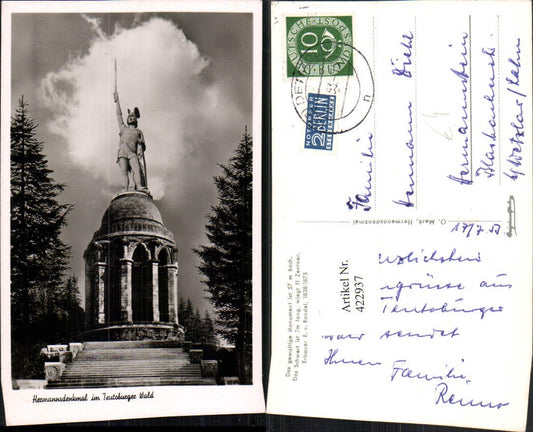 Hermannsdenkmal im Teutoburger Wald
DEUTSCHE BUNDESPOST
10
NOTOPFER
2 BERLIN
STEUERMARKE
DET
n
Familie
Hermann Diehl
Hermannstein
b/Wetzlar/Lahn
17/7 53
O. Mark, Hermannsdenkmal
Das gewaltige Monument ist 57 m hoch.
Das Schwert ist 7m lang, wiegt 11 Zentner.
Erbauer E. v. Bandel, 1838-1875
Artikel Nr.
422937
aus
Teutoburger
sendet
Ihnen
Familie